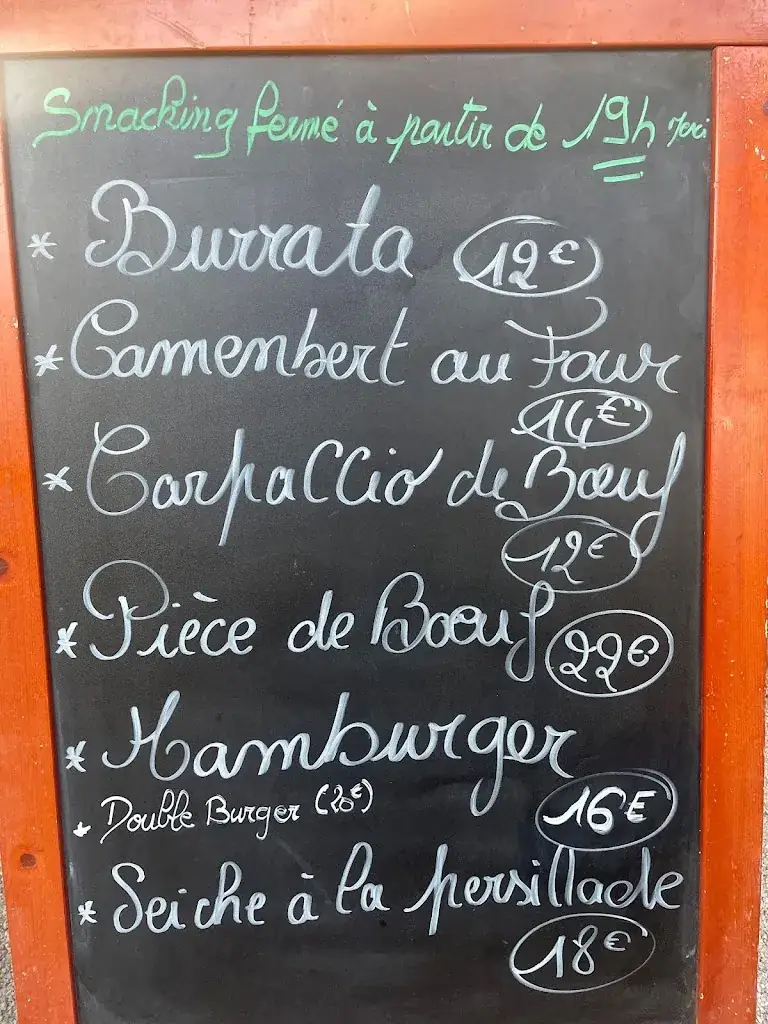 Smacking fermé à partir de 19h Merci
* Burrata 12€
* Camenbert au Four
14€
* Carpaccio de Bœuf
12€
* Pièce de Bœuf 22€
* Hamburger
+ Double Burger (20€) 16€
* Seiche à la persillade
18€